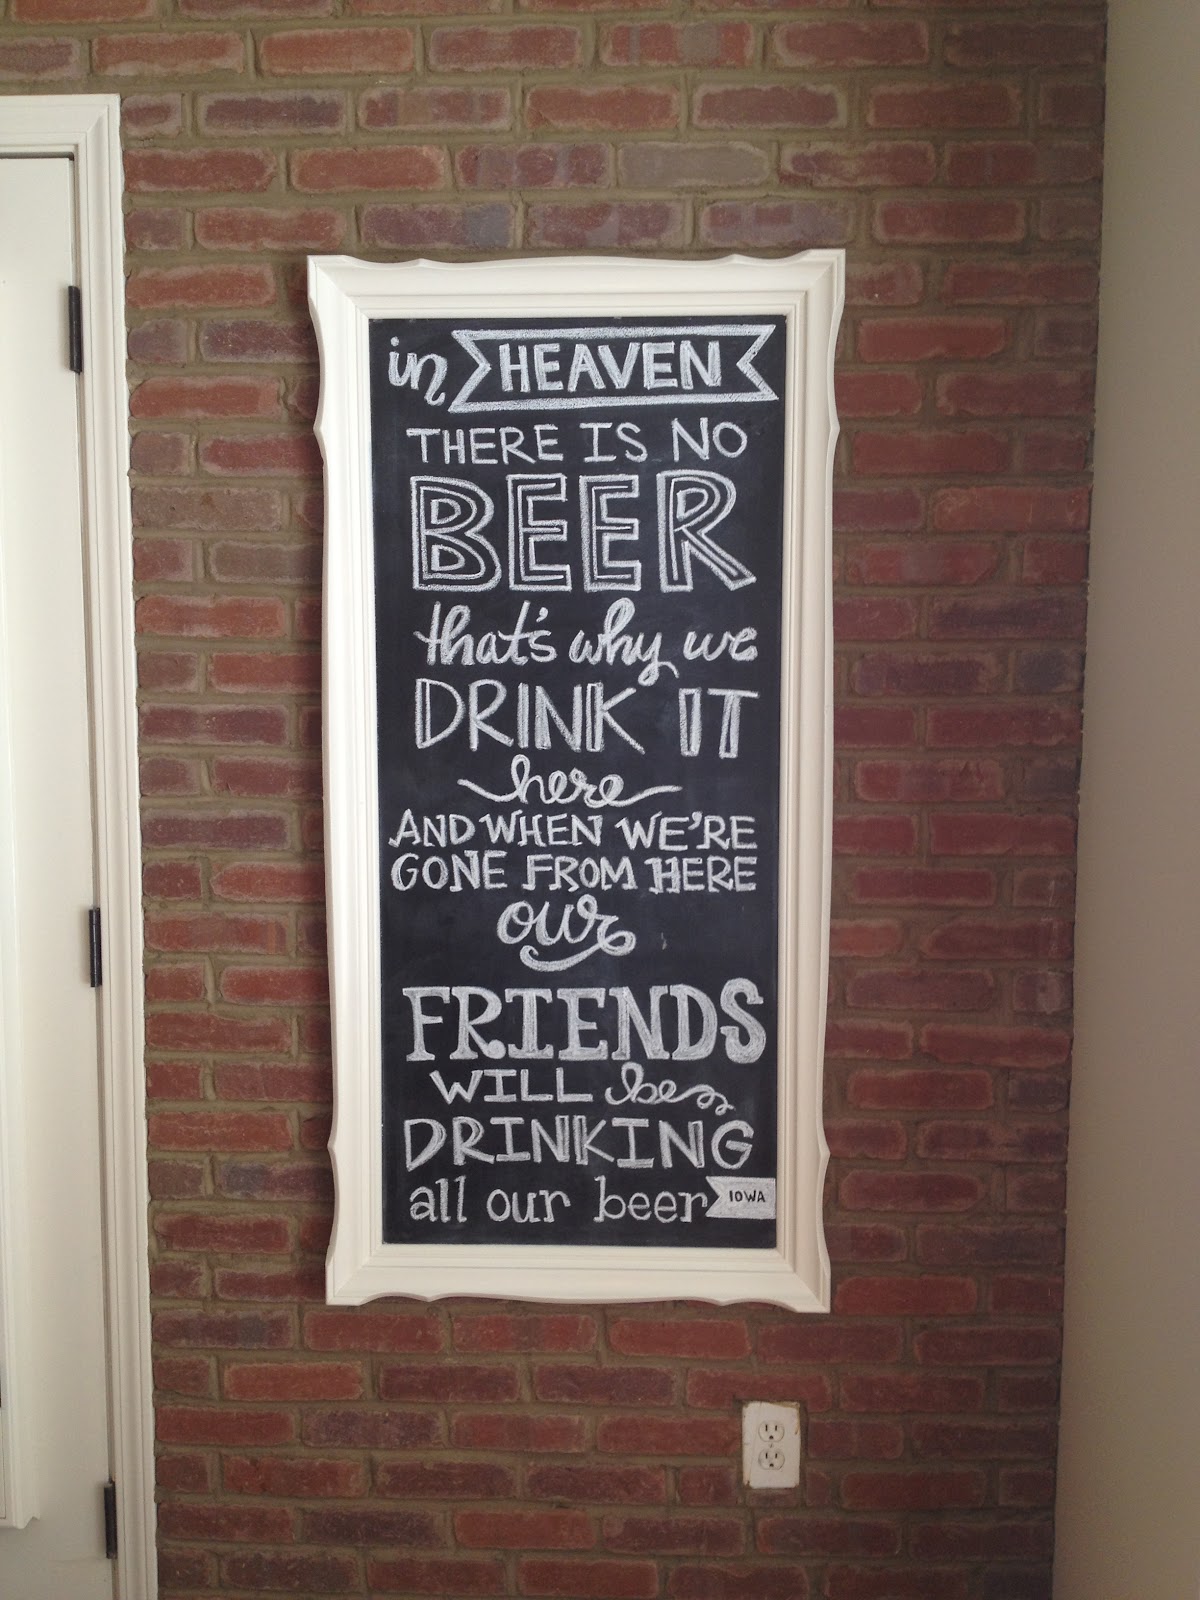 in HEAVEN
THERE IS NO
BEER
that's why we
DRINK IT
here
AND WHEN WE'RE
GONE FROM HERE
our
FRIENDS
WILL be
DRINKING
all our beer IOWA